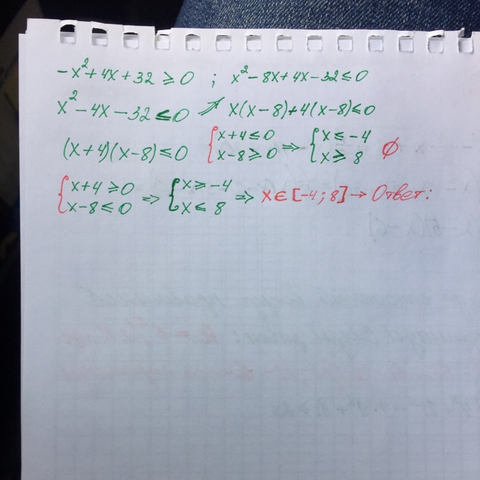 -x²+4x+32 ≥ 0 ; x²-8x+4x-32 ≤ 0
x²-4x-32 ≤ 0 ↗ x(x-8)+4(x-8) ≤ 0
(x+4)(x-8) ≤ 0 { x+4 ≤ 0 x-8 ≥ 0 ⇒ { x ≤ -4 x ≥ 8 ∅
{ x+4 ≥ 0 x-8 ≤ 0 ⇒ { x ≥ -4 x ≤ 8 ⇒ x ∈ [-4; 8] → Ответ: